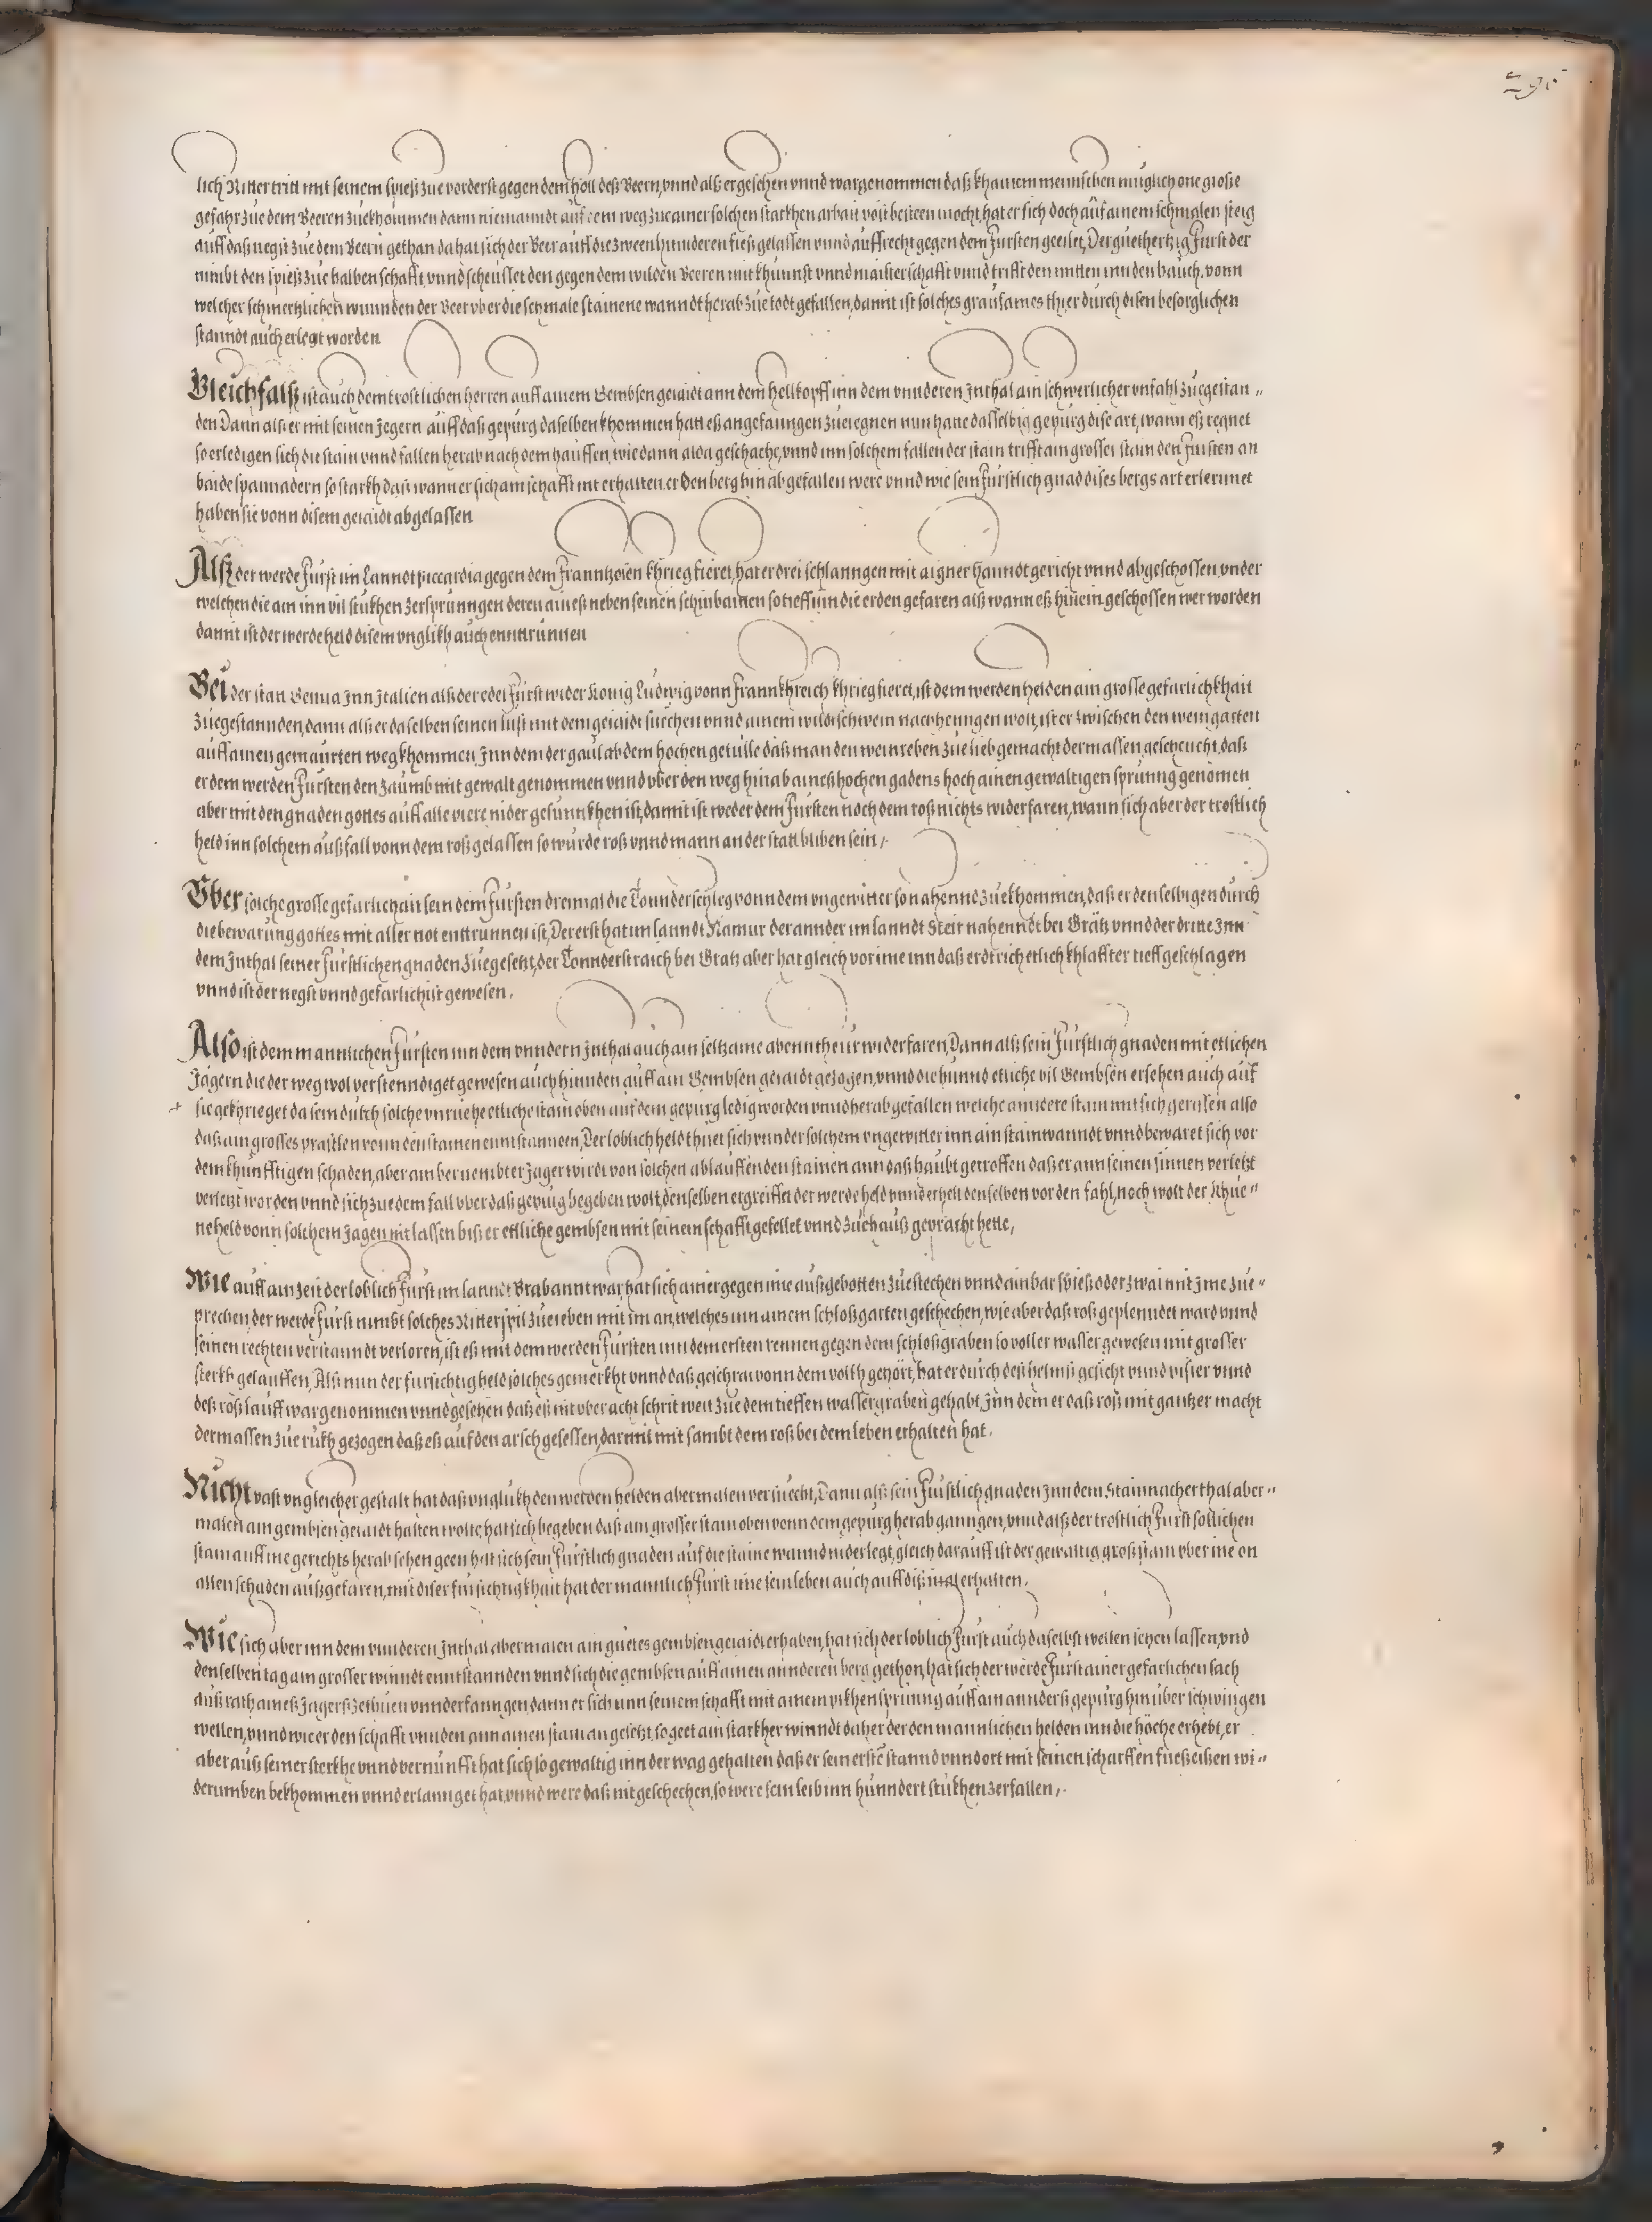 295
lich Ritter tritt mit seinem spieß zue vorderst gegen dem höll deß Beern, vnnd alß er gesehen vnnd wargenommen daß khainem mennschen muglich one große
gefahr zue dem Beeren zuekhommen dann niemanndt auf dem weg zue ainer solchen starkhen arbait vöst besteen mocht, hat er sich doch auf ainem schmalen steig
auff daß negst zue dem Beern gethan da hat sich der Beer auff die zween hinnderen fieß gelassen vnnd auffrecht gegen dem Fursten geeilet, Der guethertzig Furst der
nimbt den spieß zue halben schafft, vnnd scheusset den gegen dem wilden Beeren mit khunnst vnnd maisterschafft vnnd trifft den mitten inn den bauch, vonn
welcher schmertzlichen wunnden der Beer vber die schmale stainene wanndt herab zue todt gefallen, damit ist solches grausames thier durch disen besorglichen
stanndt auch erlegt worden
Gleichfalß ist auch dem trostlichen herren auff ainem Gembsen geiaidt ann dem hellkopff inn dem vnnderen Inthal ain schwerlicher vnfahl zuegestan„
den Dann alß er mit seinen Jegern auff daß gepurg daselben khommen hatt eß angefanngen zue regnen nun hatte dasselbig gepurg dise art, wann eß regnet
so erledigen sich die stain vnnd fallen herab nach dem hauffen, wie dann alda geschache, vnnd inn solchem fallen der stain trifft ain grosser stain den Fursten an
baide spannadern so starkh daß wann er sich am schafft nit erhalten, er den berg hinab gefallen were vnnd wie sein Furstlich gnad dises bergs art erlernnet
haben sie vonn disem geiaidt abgelassen
Alß der werde Furst im Lanndt Piccardia gegen dem Franntzosen khrieg fieret, hat er drei schlanngen mit aigner hanndt gericht vnnd abgeschossen, vnder
welchen die ain inn vil stukhen zersprunngen deren aineß neben seinen schinbainen so tieff inn die erden gefaren alß wann eß hinein geschossen wer worden
damit ist der werde held disem vnglikh auch enntrunnen
Bei der stat Genua Inn Italien alß der edel Furst wider Konig Ludwig vonn Frannkhreich khrieg fieret, ist dem werden helden ain grosse gefarlichkhait
zuegestannden, dann alß er daselben seinen lust mit dem geiaidt suechen vnnd ainem wildtschwein nachhenngen wolt, ist er zwischen den weingarten
auff ainen gemaurten weg khommen, Inn dem der gaul ab dem hochen getulle daß man den weinreben zue lieb gemacht dermassen gescheucht, daß
er dem werden Fursten den zaumb mit gewalt genommen vnnd vber den weg hinab aineß hochen gadens hoch ainen gewaltigen sprunng genomen
aber mit den gnaden gottes auff alle viere nider gesunnkhen ist, damit ist weder dem Fursten noch dem roß nichts widerfaren, wann sich aber der trostlich
held inn solchem außfall vonn dem roß gelassen so wurde roß vnnd mann an der statt bliben sein,
Über solche grosse gefarlichait sein dem Fursten dreimal die Tonnderschleg vonn dem vngewitter so nahennd zuekhommen, daß er denselbigen durch
die bewarung gottes mit aller not enttrunnen ist, Der erst hat im lanndt Namur der annder im lanndt Steir nahenndt bei Grätz vnnd der dritte Inn
dem Inthal seiner Furstlichen gnaden zuegesetzt, der Tonnderstraich bei Gratz aber hat gleich vor ime inn daß erdtrich etlich khlaffter tieff geschlagen
vnnd ist der negst vnnd gefarlichist gewesen.
Also ist dem mannlichen Fursten inn dem vnndern Inthal auch ain seltzame abenntheur widerfaren, Dann alß sein Furstlich gnaden mit etlichen
Jägern die der weg wol verstenndiget gewesen auch hinnden auff ain Gembsen geiaidt gezogen, vnnd die hunnd etliche vil Gembsen ersehen auch auf
sie gekhrieget da sein durch solche vnruehe etliche stain oben auf dem gepurg ledig worden vnnd herab gefallen welche anndere stain mit sich gerissen also
daß ain grosses prastlen vonn den stainen enntstannden, Der loblich held thuet sich vnnder solchem vngewitter inn ain stainwanndt vnnd bewaret sich vor
dem khunfftigen schaden, aber ain bernembter Jager wirdt von solchen ablauffenden stainen ann daß haubt getroffen daß er ann seinen sinnen verletzt
verletzt worden vnnd sich zue dem fall vber daß gepurg begeben wolt, denselben ergreiffet der werde held vnnd erhelt denselben vor den fahl, noch wolt der khue„
ne held vonn solchem Jagen nit lassen biß er ettliche gembsen mit seinem schafft gefellet vnnd zuehauß gepracht hette,
Wie auff ain zeit der loblich Furst im lanndt Brabannt war, hat sich ainer gegen ime außgebotten zue stechen vnnd ain bar spieß oder zwai mit Ime zue„
prechen, der werde Furst nimbt solches Ritterspil zue ieben mit im an, welches inn ainem schloßgarten geschechen, wie aber daß roß geplenndet ward vnnd
seinen rechten verstanndt verloren, ist eß mit dem werden Fursten inn dem ersten rennen gegen dem schloßgraben so voller wasser gewesen mit grosser
sterkh gelauffen, Alß nun der fursichtig held solches gemerkht vnnd daß geschrai vonn dem volkh gehört, hat er durch deß helmß gesicht vnnd visier vnnd
deß roß lauff wargenommen vnnd gesehen daß eß nit vber acht schrit weit zue dem tieffen wassergraben gehabt, Inn dem er daß roß mit gantzer macht
dermassen zue rukh gezogen daß eß auf den arsch gesessen, darmit mit sambt dem roß bei dem leben erhalten hat.
Nicht vast vngleicher gestalt hat daß vnglukh den werden helden abermalen versuecht, Dann alß sein Furstlich gnaden Inn dem Stainnacher thal aber„
malen ain gembsen geiaidt halten wolte, hat sich begeben daß ain grosser stain oben vonn dem gepurg herab ganngen, vnnd alß der trostlich Furst sollichen
stain auff ine gerichts herab sehen geen hat sich sein Furstlich gnaden auf die staine wannd niderlegt, gleich darauff ist der gewaltig groß stain vber ine on
allen schaden außgefaren, mit diser fursichtigkhait hat der mannlich Furst ime sein leben auch auff diß mal erhalten.
Wie sich aber inn dem vnnderen Inthal abermalen ain guetes gembsengeiaidt erhaben, hat sich der loblich Furst auch daselbst wellen sehen lassen, vnd
denselben tag ain grosser winndt enntstannden vnnd sich die gembsen auff ainen annderen berg gethon, hat sich der werde Furst ainer gefarlichen sach
auß rath aineß Jagerß zethuen vnnderfanngen, dann er sich inn seinem schafft mit ainem pikhensprunng auff ain annderß gepurg hinüber schwingen
wellen, vnnd wie er den schafft vnnden ann ainen stain angesetzt, so geet ain starkher winndt daher der den mannlichen helden inn die höche erhebt, er
aber auß seiner sterkhe vnnd vernunfft hat sich so gewaltig inn der wag gehalten daß er sein erste stannd vnnd ort mit seinen scharffen fueßeißen wi„
derumben bekhommen vnnd erlannget hat, vnnd were daß nit geschechen, so were sein leib inn hunndert stukhen zerfallen,